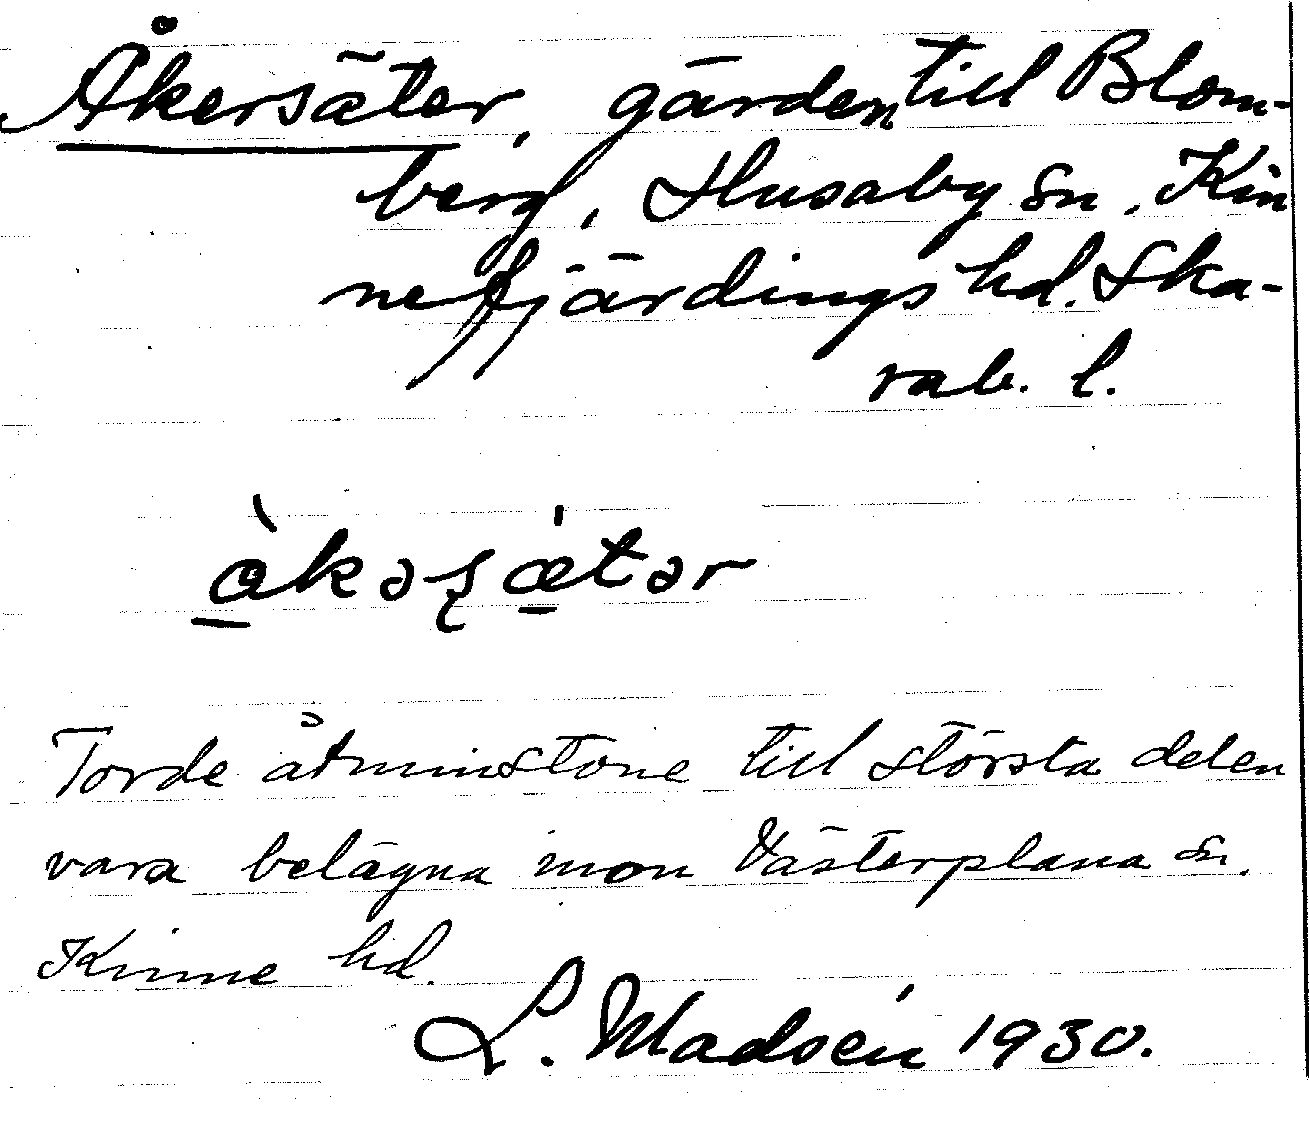 Åkersäter, gärden till Blom-
berg, Husaby sn. Kin
nefjärdings hd. Ska-
rab. l.
àkəʂætər
Torde åtminstone till största delen
vara belägna inom Västerplana sn.
Kinne hd.
L. Madsén 1930.